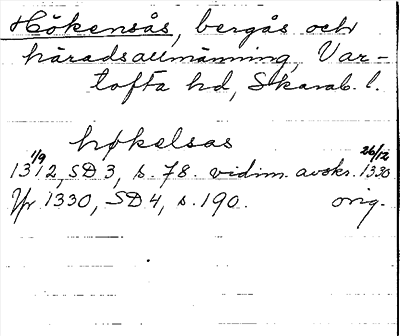 Hökensås, bergås och
häradsallmänning, Var-
tofta hd, Skarab. l.
høkelsas
1/9 26/12
1312, SD 3, s. 78. vidim. avskr. 1330
Yr 1330, SD 4, s. 190. orig.